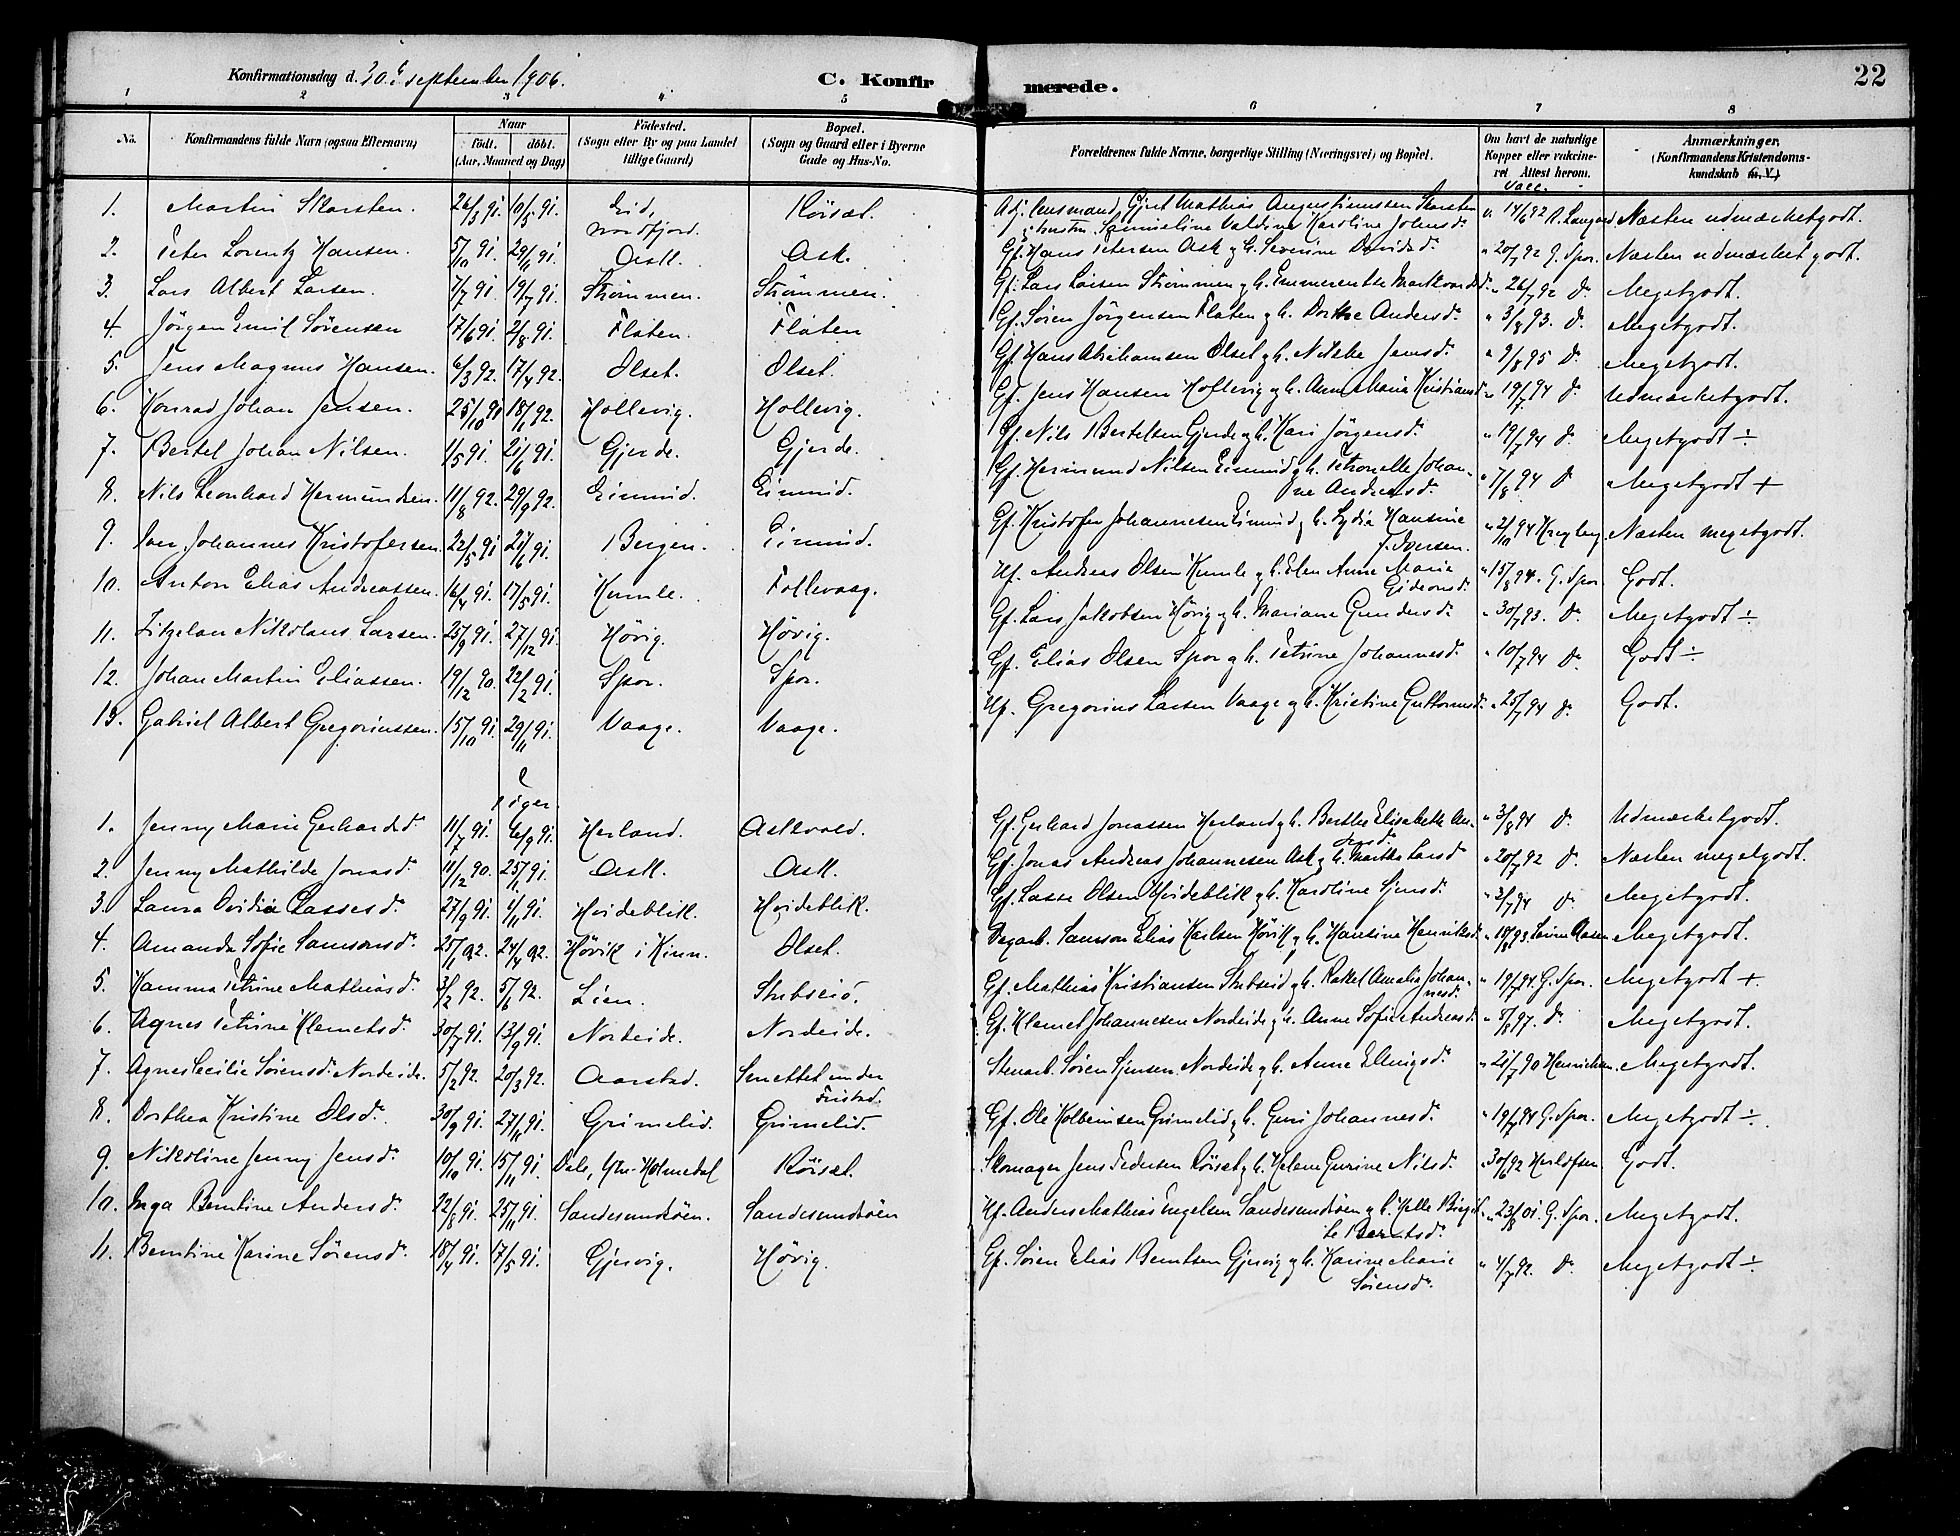 22
Konfirmationsdag d. 30.t september 1906. C. Konfirmerede.
1 2 3 4 5 6 7 8
No. Konfirmandens fulde Navn (ogsaa Efternavn) Naar födt. döbt. (Aar, Maaned og Dag) Födested. (Sogn eller By og paa Landet tillige Gaard) Bopæl. (Sogn og Gaard eller i Byerne Gade og Hus-No. Forældrenes fulde Navne, borgerlige Stilling (Næringsvei) og Bopæl. Om havt de naturlige Kopper eller vakcineret Attest herom. Anmærkninger. (Konfirmandens Kristendomskundskab m. V.)
Vacc.
1. Martin Skarsten. 26/3 91. 10/5 91. Eid, Nordfjord. Röiset. Afj. lensmand Gjert Mathias Augustinussen Skarsten & hustru Samueline Valdine Karoline Johnsd. v. 14/6 92 Næsten udmærketgodt.
2. Peter Lorentz Hansen. 5/10 91. 29/11 91. Ask. Ask. Gf. Hans Petersen Ask g h. Severine Davidsdr. " 20/7 92 G. Spor. Næsten udmærket godt.
3. Lars Albert Larsen. 7/7 91. 19/7 91. Strømmen. Strømmen. Gf. Lars Larsen Strømmen g h. Emmerentze " 26/7 92 do. Megetgodt.
4. Jörgen Emil Sörensen 17/6 91. 2/8 91. Flaten. Flaten Gf. Sören Jörgensen Flaten g h. Dorthe Andersdr. " 3/8 93. do. Megetgodt.
5. Jens Magnus Hansen. 6/3 92. 17/4 92. Ølset. Ølset. Gf. Hans Abrahamsen Ølset g h. Nilske Jensdr. " 9/8 95 do. Megetgodt.
6. Konrad Johan Jensen. 25/10 90 18/1 92. Hollevig. Hollevig. Gf. Jens Hansen Hollevig g h. Anne Maria Kristiansdr. " 19/7 94 do. Udmærketgodt.
7. Bertel Johan Nilsen. 1/5 91. 21/6 91. Gjerde. Gjerde. Gf. Nils Bertelsen Gjerde g h. Kari Jörgensdr. " 19/7 94 do. Megetgodt ÷
8. Nils Leonhard Hermundsen. 11/8 92. 29/9 92. Eimind. Eimind. Gf. Hermund Nilsen Eimind g h. Petronelle Johanne Andreasdr. " 7/8 94 do Megetgodt +
9. Iver Johannes Kristofersen. 22/5 91 21/6 91. Bergen. Eimind. Gf. Kristofer Johannesen Eimind g h. Lydia Hansine J. Iversen. " 2/10 94 Næsten megetgodt.
10. Anton Elias Andreassen. 16/4 91. 17/5 91. Kumle. Follevaag. Uf. Andreas Olsen Kumle g h. Elen Anne Maria Gideonsdr. " 15/8 94. G. Spor Godt.
11. Nikolaus Larsen. 25/9 91. 27/12 91. Hövig. Hövig. Gf. Lars Jakobsen Hövig g h. Mariane Gundersdr. " 30/7 93. do. Megetgodt ÷
12. Johan Martin Eliassen. 19/12 90. 22/2 91. Spor. Spor. Gf. Elias Olsen Spor g h. Petrine Johannesdr. " 10/7 94 do. Godt ÷
13. Gabriel Albert Gregoriussen. 15/10 91. 29/11 91. Vaage. Vaage. Uf. Gregorius Larsen Vaage g h. Kristine Guttormsdr. " 25/7 94 do. Godt.
Piger.
1. Jenny Marie Gerhardsdr. 11/7 91. 6/9 91. Herland. Askvold. Gf. Gerhard Jonassen Herland g h. Berthe Elisabeth Andersdr. " 3/8 94 do. Udmærketgodt.
2. Jenny Mathilde Jonasdr. 11/12 90. 25/1 91. Ask. Ask. Gf. Jonas Andreas Johannesen Ask g h. Marthe Larsdr. " 20/7 92 do. Næsten megetgodt.
3. Laura Ovidia Lassesdr. 27/9 91. 1/11 91. Hvideblik. Hvideblik. Gf. Lasse Olsen Hvideblik g h. Karoline Sjursdr. " 3/7 94 do. Megetgodt.
4. Amanda Sofie Samsonsdr. 25/1 92. 24/4 92. Hövik i Kinn. Ølset. Dagarb. Samson Elias Karlsen Hövik g h. Hansine Henriksdr. " 18/8 93. Megetgodt.
5. Hamma Petrine Mathiasdr. 3/2 92. 5/6 92. Lien. Stubseid. Gf. Mathias Kristiansen Stubseid g h. Rakel Amalia Johannesdr. " 19/7 94 G. Spor. Megetgodt +.
6. Agnes Petrine Klemetsdr. 30/7 91. 13/9 91. Nordeide. Nordeide. Gf. Klemet Johannesen Nordeide g h. Anne Sofie Andreasdr. " 5/8 97. do. Megetgodt.
7. Agnes Cecilie Sörensdr. Nordeide. 5/2 92. 20/3 92. Aarstad. Smettet under Fristad. Stenarb. Sören Sjursen Nordeide g h. Anne Ellingsdr. " 21/7 90 Henrichsen. Megetgodt.
8. Dorthea Kristine Olsdr. 30/9 91. 27/11 91. Grimelid. Grimelid. Gf. Ole Kolbeinsen Grimelid g h. Guri Johannesdr. " 19/7 94 G. Spor. Megetgodt ÷.
9. Nikoline Jenny Jensdr. 10/10 91. 15/11 91. Dale, Ytre Holmedal Röiset. Skomager Jens Pedersen Röiset g h. Helene Gurine Nilsdr. " 30/6 92 Herlofsen Godt.
10. Inga Berntine Andersdr. 22/8 91. 25/11 91. Sandesundöen. Sandesundöen Uf. Anders Mathias Engelsen Sandesundöen g h. Helle Birgitte Berntsdr. " 23/8 01. G. Spor. Megetgodt.
11. Berntine Karine Sörensdr. 18/4 91. 17/5 91. Gjervig. Hövig. Gf. Sören Elias Berntsen Gjervig g h. Karine Marie Sörensdr. " 4/7 92. do. Megetgodt ÷